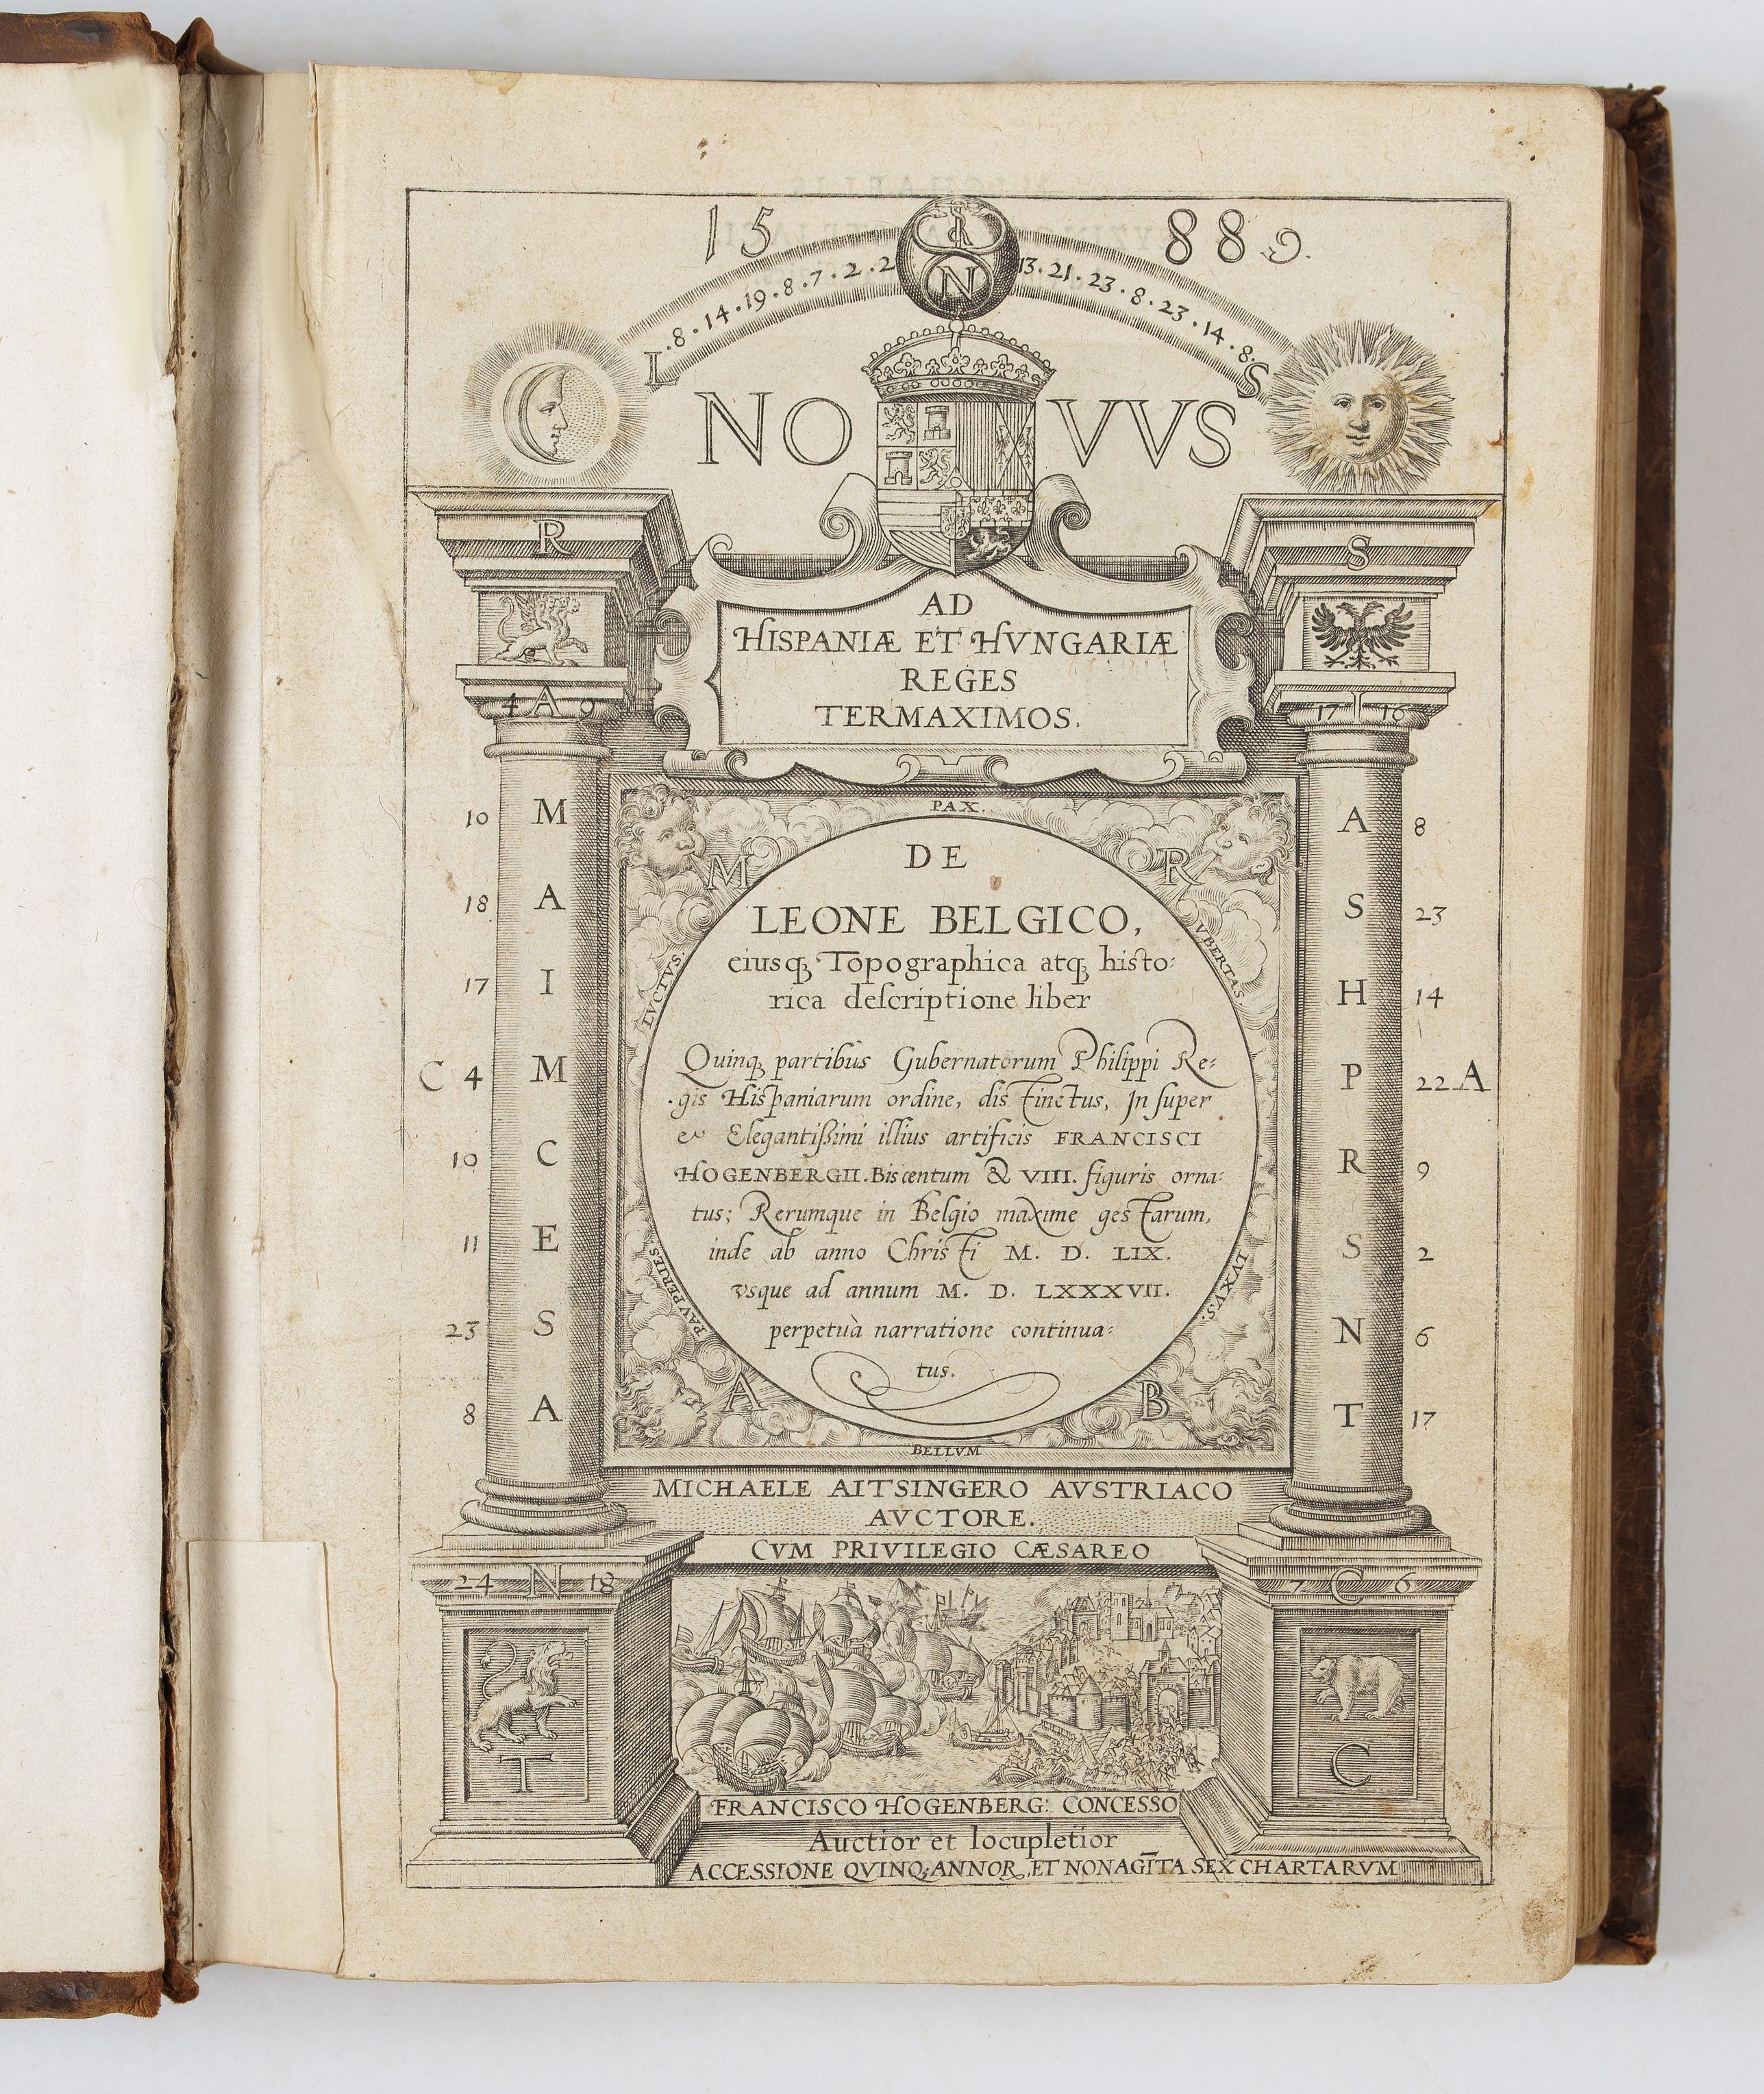 15 889.
I
N
L.8.14.19.8.7.2.2 13.21.23.8.23.14.8.S
NO VVS
R S
AD
HISPANIÆ ET HVNGARIÆ
REGES
TERMAXIMOS.
4 A 9 17 I 16
10 M A 8
18 A S 23
17 I H 14
C 4 M P 22 A
10 C R 9
11 E S 2
23 S N 6
8 A T 17
PAX.
M R
LVCTVS. VBERTAS.
DE
LEONE BELGICO,
eiusq́ Topographica atq́ histo:
rica descriptione liber
Quinq́ partibus Gubernatorum Philippi Re:
gis Hispaniarum ordine, distinctus, Insuper
et Elegantißimi illius artificis FRANCISCI
HOGENBERGII. Biscentum & VIII. figuris orna:
tus; Rerumque in Belgio maxime gestarum,
inde ab anno Christi M. D. LIX.
vsque ad annum M. D. LXXXVII.
perpetuà narratione continua:
tus.
PAVPERIES. LVXVS.
A B
BELLVM
MICHAELE AITSINGERO AVSTRIACO
AVCTORE.
CVM PRIVILEGIO CÆSAREO
24 N 18 7 C 6
T C
FRANCISCO HOGENBERG: CONCESSO
Auctior et locupletior
ACCESSIONE QVINQ; ANNOR, ET NONAGĪTA SEX CHARTARVM